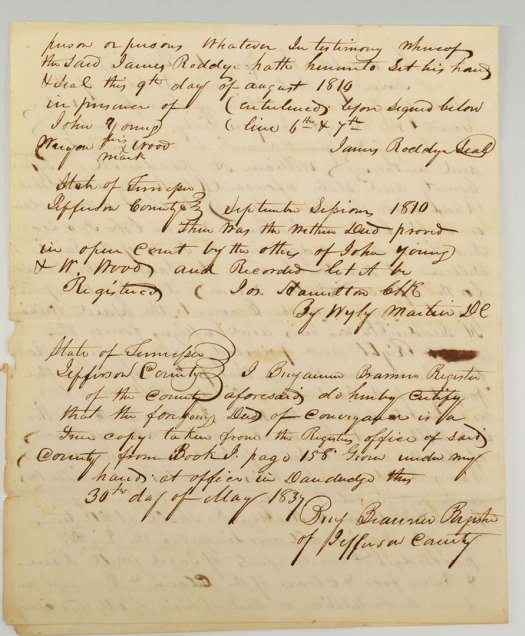 person or persons Whatever In testimony Whereof
the said James Roddye hath hereunto Set his hand
& Seal this 9th day of august 1810
in presence of (enterlined upon signed below
John Young (line 6th & 7th
his
Wood James Roddye Seal
mark
State of Tennessee
Jefferson County September Sessions 1810
Then was the within Deed proved
in open Court by the othes of John Young
& W. Wood and Recorded let it be
Registered Jos Hamilton Clk
By Wyly Martin DC
State of Tennessee
Jefferson County I Register
of the County aforesaid do hereby Certify
that the foregoing Deed of Conveyance is a
True copy taken from the Register office of said
County from Book I. page 158. Given under my
hand at office in Dandridge this
30th day of May 1837
Register
of Jefferson County